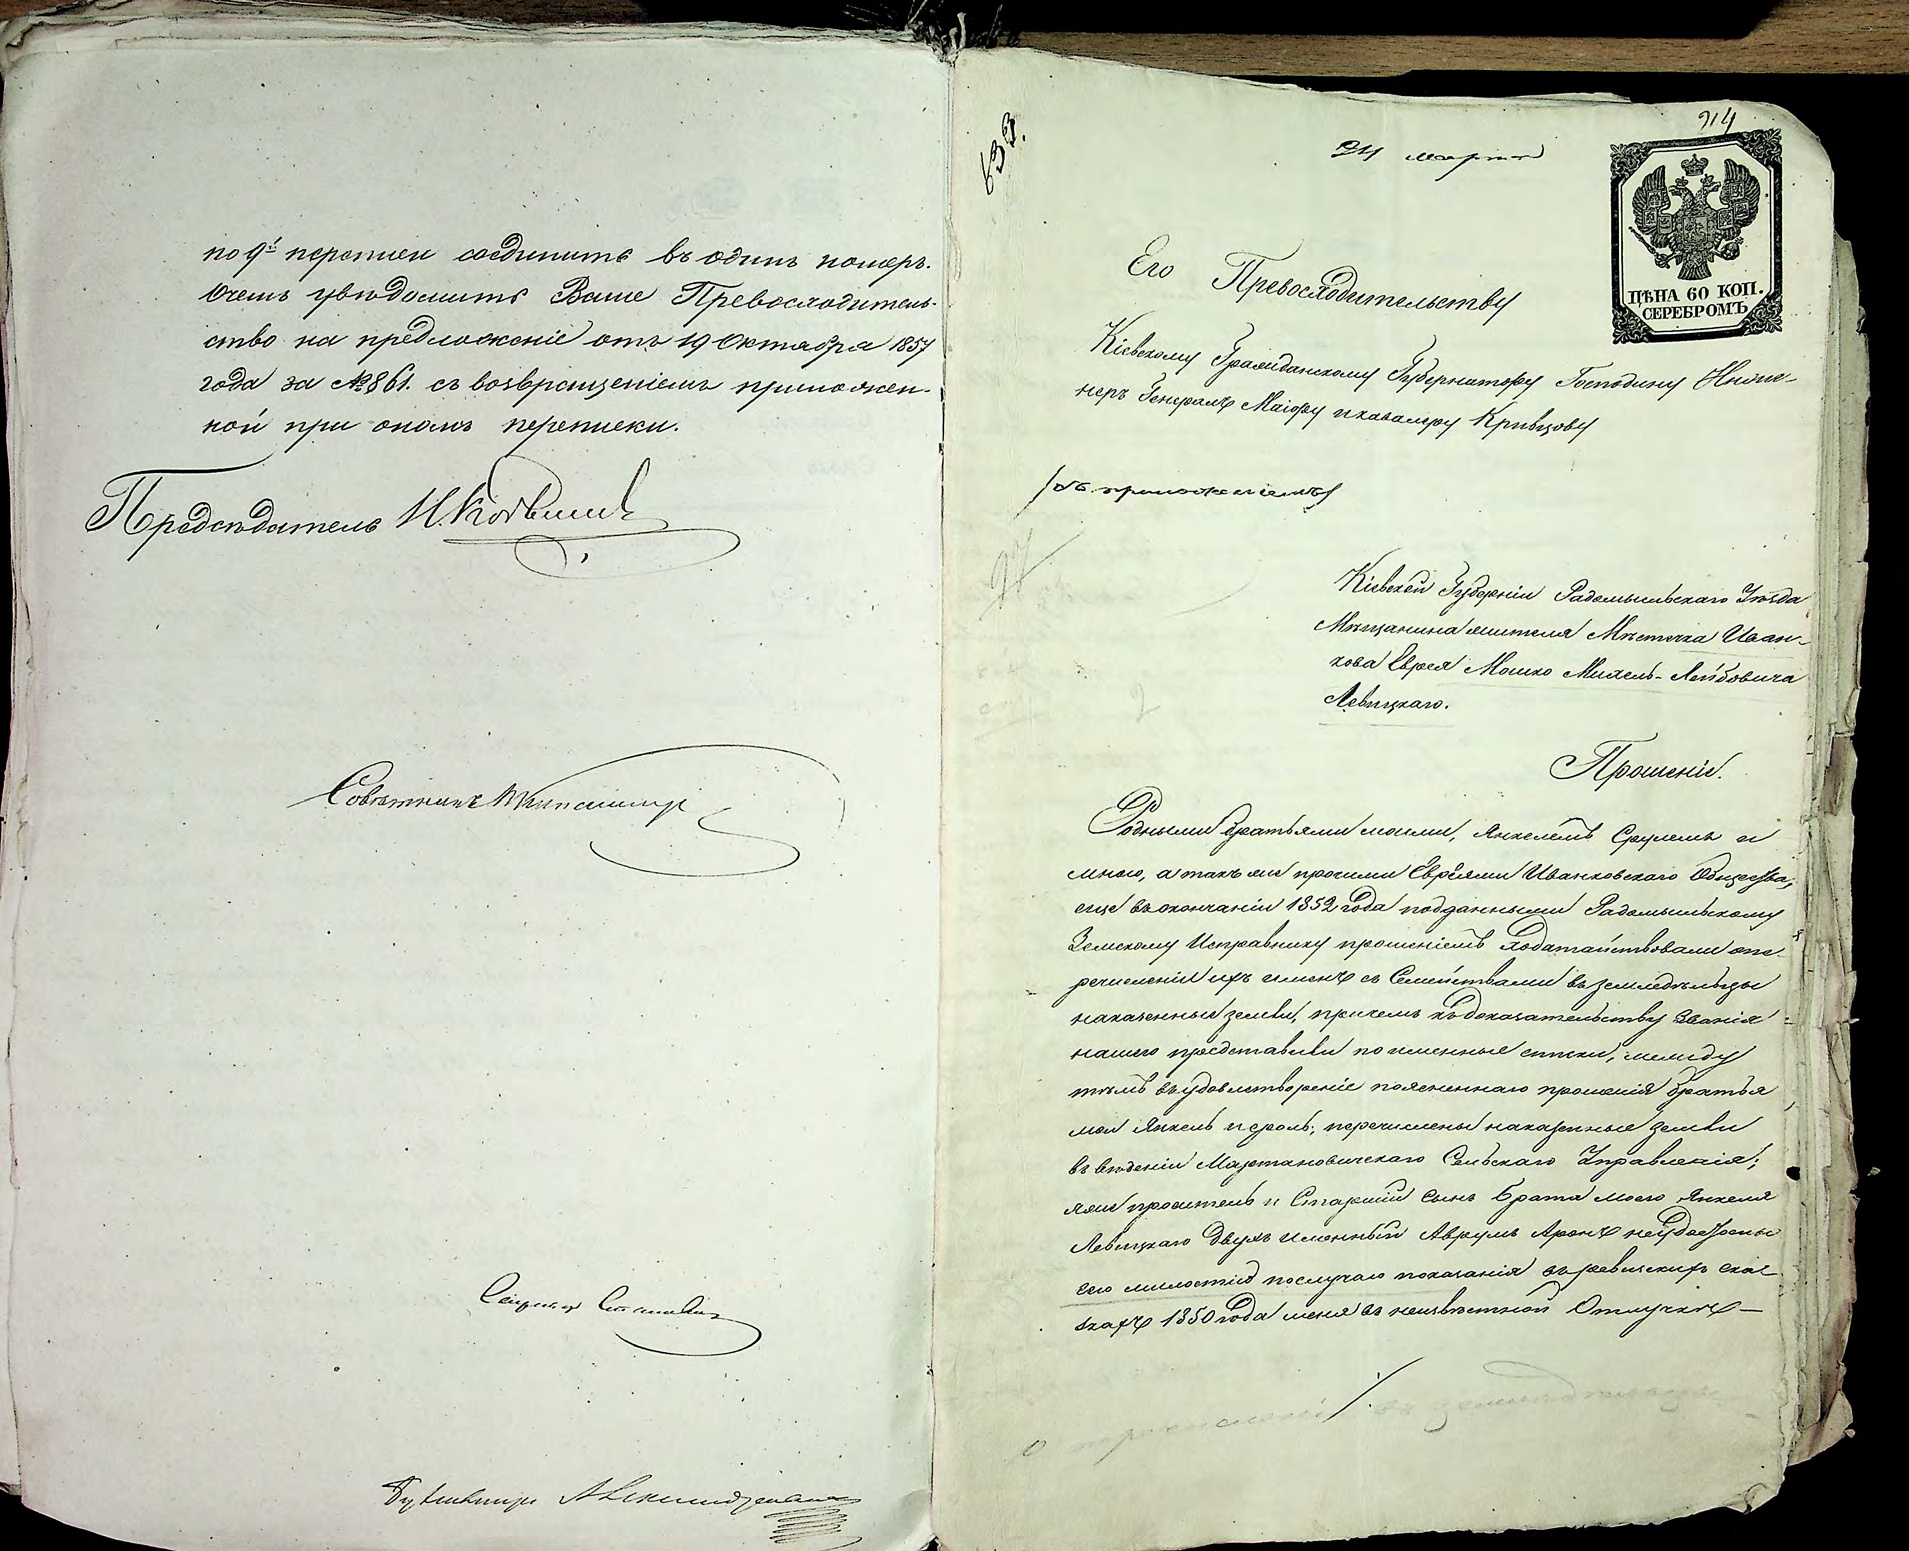 по 9й переписи соединить въ одинъ номеръ.
О чемъ увѣдомить Ваше Превосходитель-
ство на предложеніе отъ 19 Октября 1857
года за № 861. съ возвращеніемъ приложен-
ной при ономъ переписки.
Предсѣдатель
Совѣтникъ
Бухгалтеръ
833.
914
24 марта
ЦѢНА 60 КОП.
СЕРЕБРОМЪ
Его Превосходительству
Кіевскому Гражданскому Губернатору Господину Инже-
неръ Генералъ Маіору и кавалеру Кривцову
/съ приложеніемъ/
Кіевской Губерніи Радомысльскаго Уѣзда
Мѣщанина жителя Мѣстечка Иван-
кова Еврея Мошко Михель-Лейбовича
Левицкаго.
Прошеніе.
Родными братьями моими, Янкелемъ Срулемъ и
мною, а такъ же прочими Евреями Иванковскаго Общества,
еще въ окончаніи 1852 года поданными Радомысльскому
Земскому Исправнику прошеніемъ ходатайствовали о пе-
речисленіи ихъ и меня съ Семействами въ земледѣльцы
на казенныя земли, причемъ къ доказательству Званія
нашего представили поименные списки, между
тѣмъ въ удовлетвореніе поясненнаго прошенія братья
мои Янкель и сроль; перечислены на казенные земли
въ вѣденіи Мартановичскаго Сельскаго Управленія;
я же проситель и Старшій сынъ Брата моего Янкеля
Левицкаго двухъ именный Аврумъ Аронъ не удостоены
сею милостію по случаю показанія въ ревизскихъ ска-
зкахъ 1850 года меня въ неизвѣстной Отлучкѣ —
О перечисленіи въ земледѣльцы